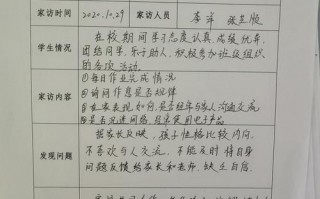 家访时间 2020.10.29 家访人员 李洋 张立股
学生情况
在校期间学习态度认真,成绩优异,
团结同学,乐于助人,积极参加班级组织
的各项活动。
家访内容
①每日作业完成情况
②询问作息是否规律
③在家表现如何,是否经常与家人沟通交流
④是否沉迷网络,经常使用电子产品
发现问题
据家长反映,孩子性格比较内向,
不喜欢与人交流,不能及时将自身
问题反馈给家长和老师,缺乏自信。